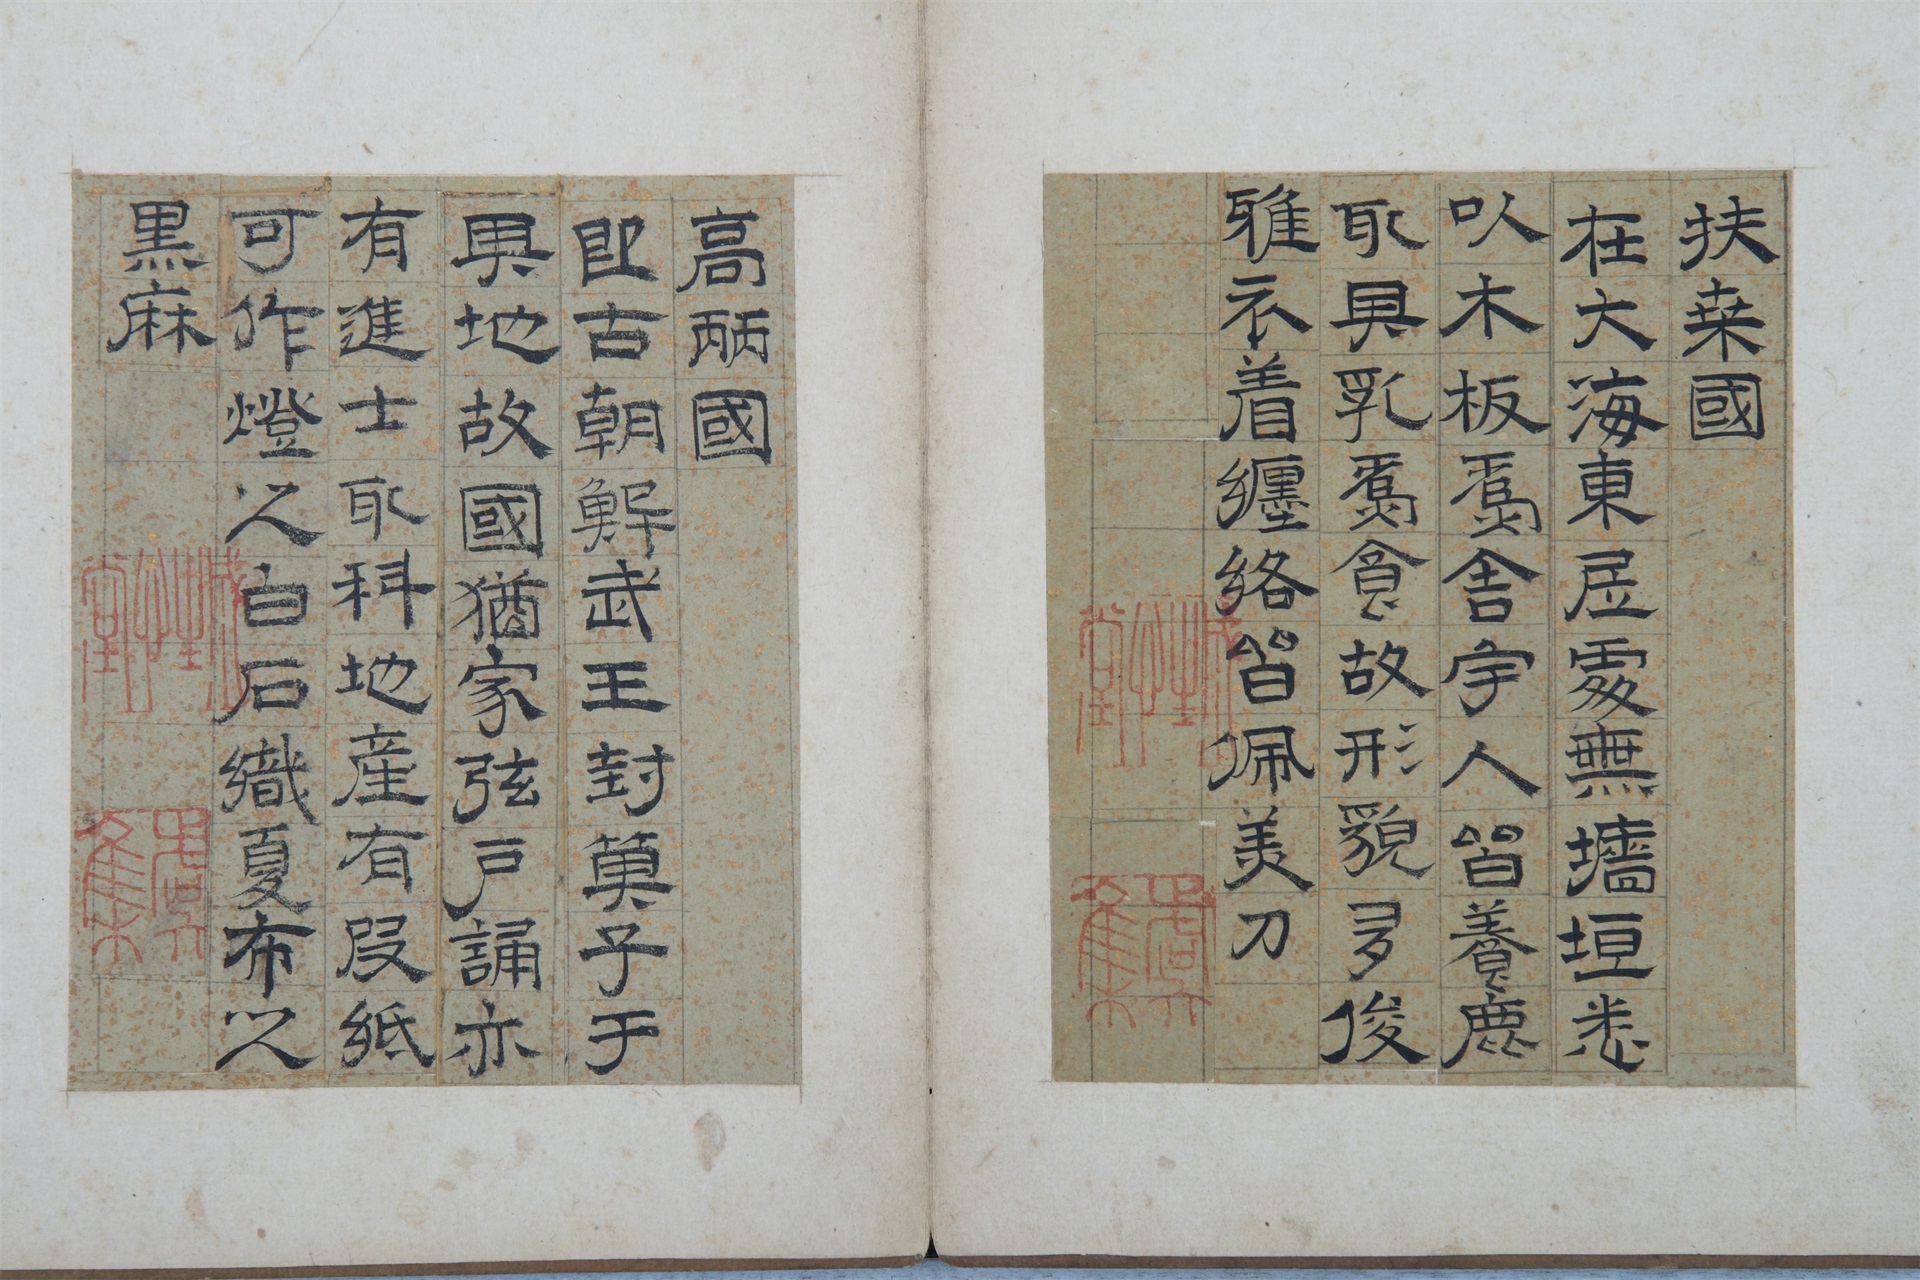 扶桒國
在大海東居處無墻垣悉
以木板爲舍宇人皆養鹿
取其乳爲食故形貌多俊
雅衣着纏絡皆佩美刀
高䴡國
即古朝鮮武王封萁子于
其地故國猶家弦戶誦亦
有進士取科地産有段紙
可作燈之白石織夏布之
黒麻